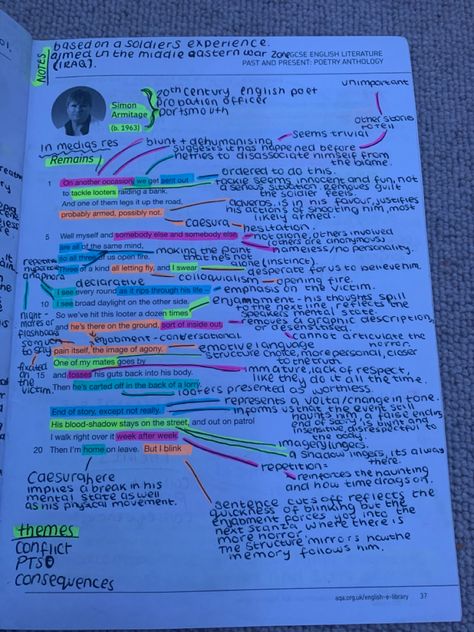 NOTES
based on a soldiers experience.
aimed in the middle eastern war zone
(IRAQ).
GCSE ENGLISH LITERATURE
PAST AND PRESENT: POETRY ANTHOLOGY
Simon
Armitage
(b. 1963)
20th century english poet
probation officer
portsmouth
unimportant
other stories
to tell
In medias res
blunt + dehumanising
seems trivial
suggests it has happened before
tries to disassociate himself from
the blame
Remains
ordered to do this.
1 On another occasion, we get sent out
tackle seems innocent and fun, not
a serious situation removes guilt
the soldier feels
to tackle looters raiding a bank.
And one of them legs it up the road,
probably armed, possibly not.
adverb, is in his favour, justifies
his actions of shooting him, most
likely armed.
caesura
hesitation.
5 Well myself and somebody else and somebody else
not alone, others involved
(others are anonymous)
nameless/no personality.
are all of the same mind,
so all three of us open fire.
making the point
that he's not
alone (instinct).
Three of a kind all letting fly, and I swear
desperate for us to believe him
declarative
colloquialism
opening fire.
I see every round as it rips through his life –
emphasis on the victim.
10 I see broad daylight on the other side.
enjambment - his thoughts spill
to the next line, reflects the
speakers mental state.
So we've hit this looter a dozen times
and he's there on the ground, sort of inside out,
removes a graphic description,
or desensitised.
cannot articulate the
horror.
enjambment - conversational
pain itself, the image of agony.
emotive language
structure choice, more personal, closer
to the truth
One of my mates goes by
15 and tosses his guts back into his body.
immature, lack of respect,
like they do it all the time.
Then he's carted off in the back of a lorry.
looters presented as worthless.
fixated
on
the
victim.
represents a volta/change in tone.
End of story, except not really.
informs us that the event still
haunts him, a false ending
end of story is blunt and
insensitive, disrespectful to
the body.
His blood-shadow stays on the street, and out on patrol
imagery lingers.
a shadow lingers, its always
there.
I walk right over it week after week.
repetition =
reinforces the haunting
and how time drags on.
20 Then I'm home on leave. But I blink
Caesura here
implies a break in his
mental state as well
as his physical movement.
sentence cuts off reflects the
quickness of blinking but the
enjambment forces you into the
next stanza where there is
more horror.
The structure mirrors how the
memory follows him.
themes
conflict
PTSD
consequences
aqa.org.uk/english-e-library
37